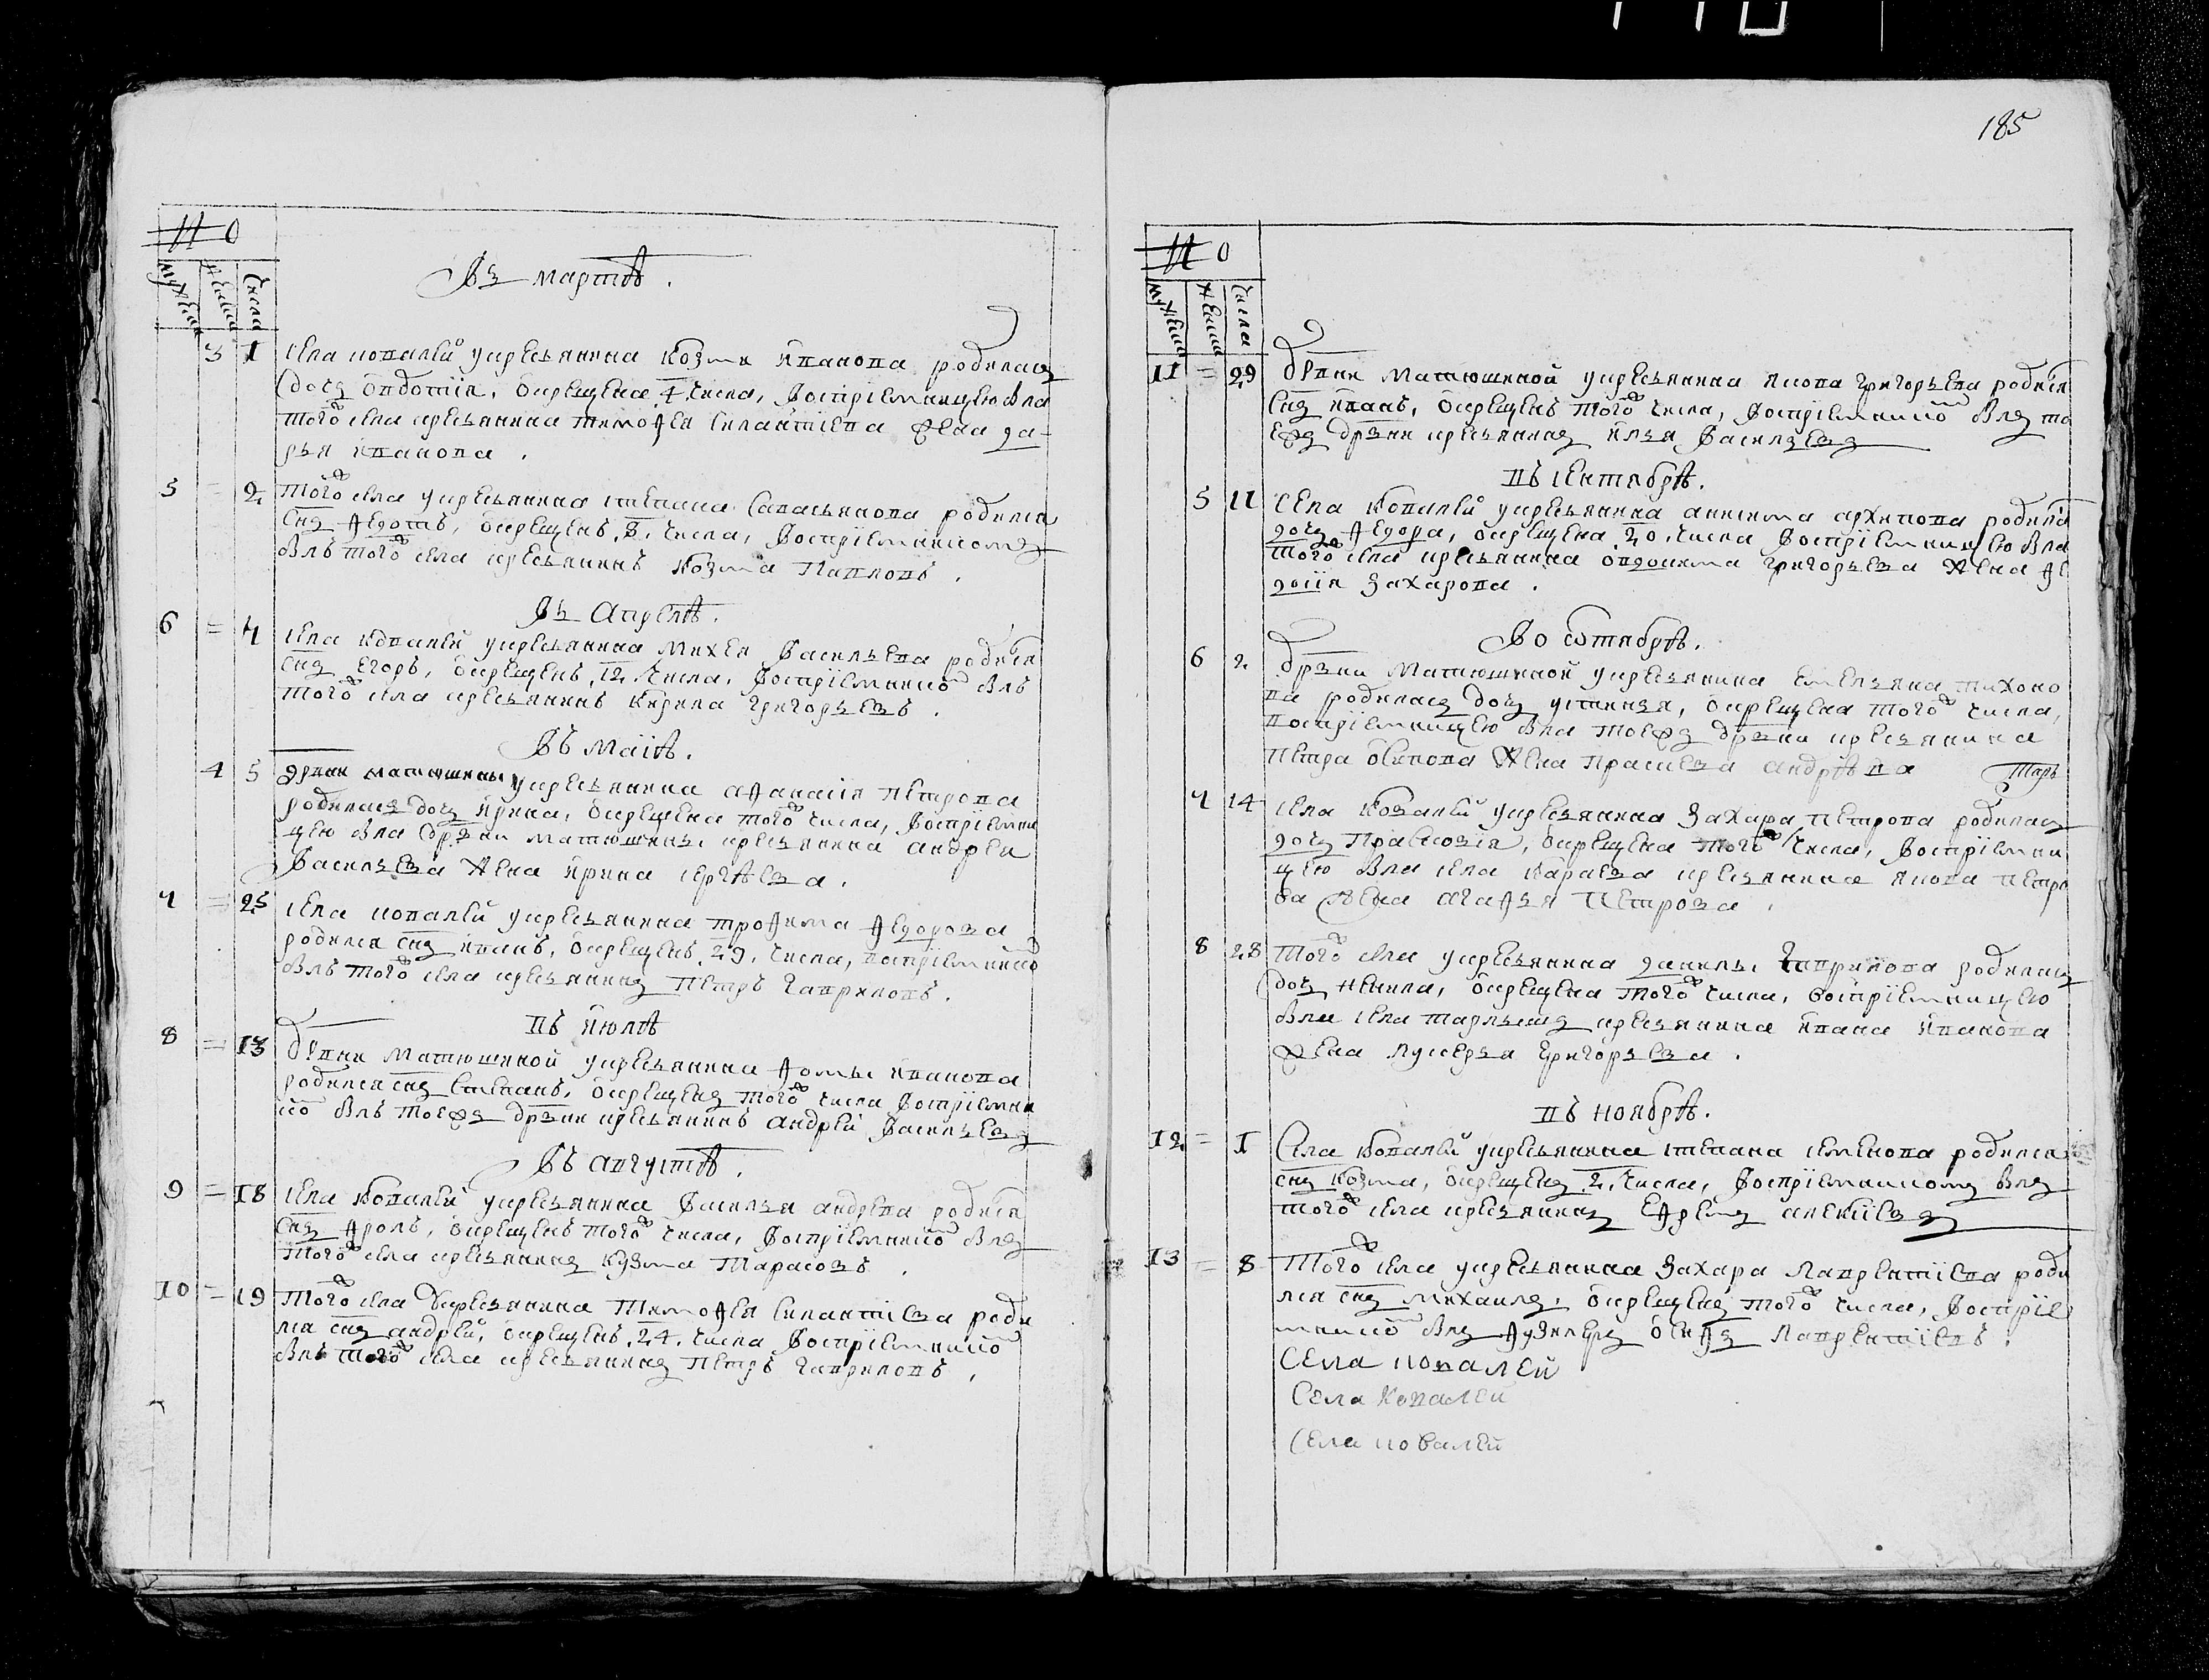 №
мужеска
женска
числа
Въ мартѣ.
3 1 села ковалей укрестьянина козмы иванова родиласъ
дочъ овдотия, окрещена 4 числа, восприемницею бла
того села крестьянина тимоѳея силантиева жена да-
рья иванова.
5 = 2 того ж села укрестьянина степана савастьянова родился
снъ ѳедотъ, окрещенъ 8 числа, восприемникомъ
былъ того ж села крестьянинъ козма павловъ.
Въ апрелѣ.
6 = 4 села ковалей укрестьянина михея васильева родился
снъ егоръ, окрещенъ 12 числа, восприемнико блъ
того ж села крестьянинъ кирила григорьевъ.
Въ маиѣ.
4 5 дрвни матюшины укрестьянина аѳанасия петрова
родиласъ дочъ ирина, окрещена того ж числа, восприемни
цею бла дрвни матюшины крестьянина андрея
васильева жена ирина сергѣева.
7 = 25 села ковалей укрестьянина троѳима ѳедорова
родился снъ иванъ, окрещенъ 29 числа, восприемнико
блъ того ж села крестьянинъ петръ гавриловъ.
Въ июлѣ
8 = 13 дрвни матюшиной укрестьянина ѳомы иванова
родился снъ степанъ, окрещенъ того ж числа восприемни
ко блъ тоежъ дрвни крестьянинъ андрей васильевъ
Въ августѣ.
9 = 18 села ковалей укрестьянина василья андрева родился
снъ ѳролъ, окрещенъ того ж числа, восприемнико блъ
того ж села крестьянинъ кузма тарасовъ.
10 = 19 того ж села укрестьянина тимоѳея силантиева роди
лся снъ андрей, окрещенъ 24 числа восприемнико
блъ того ж села крестьянинъ петръ гавриловъ.
185
№
мужеска
женска
числа
11 = 29 дрвни матюшиной укрестьянина якова григорьева родился
снъ иванъ, окрещенъ того ж числа, восприемнико блъ то
ежъ дрвни крестьянинъ илья васильевъ
Въ сентябрѣ.
5 11 села ковалей укрестьянина анисима архипова родилась
дочъ ѳедора, окрещена 20 числа восприемницею бла
того ж села крестьянина овдокима григорьева жена ѳе
досия захарова.
Во октябрѣ.
6 2 дрвни матюшиной укрестьянина емельяна тихоно
ва родиласъ дочъ устинья, окрещена того ж числа,
восприемницею бла тоежъ дрвни крестьянина
петра осипова жена прасковья андрѣева
7 14 села ковалей укрестьянина захара петрова родиласъ
дочъ прасковия, окрещена того ж числа, восприемни
цею бла села караева крестьянина якова петро
ва жена агаѳья петрова.
8 28 того ж села укрестьянина данилы гаврилова родиласъ
дочъ ненила, окрещена того ж числа, восприемницею
бла села крестьянина ивана иванова
жена лукерья григорьева.
Въ ноябрѣ.
12 = 1 села ковалей укрестьянина степана семенова родился
снъ козма, окрещенъ 2 числа, восприемникомъ блъ
того ж села крестьянинъ еѳремъ алексиевъ
13 = 8 того ж села укрестьянина захара лаврентиева роди
лся снъ михаилъ, окрещенъ того ж числа, восприе
мнико блъ ѳузилеръ осиѳъ лаврентиевъ.
села ковалей
села ковалей
села ковалей